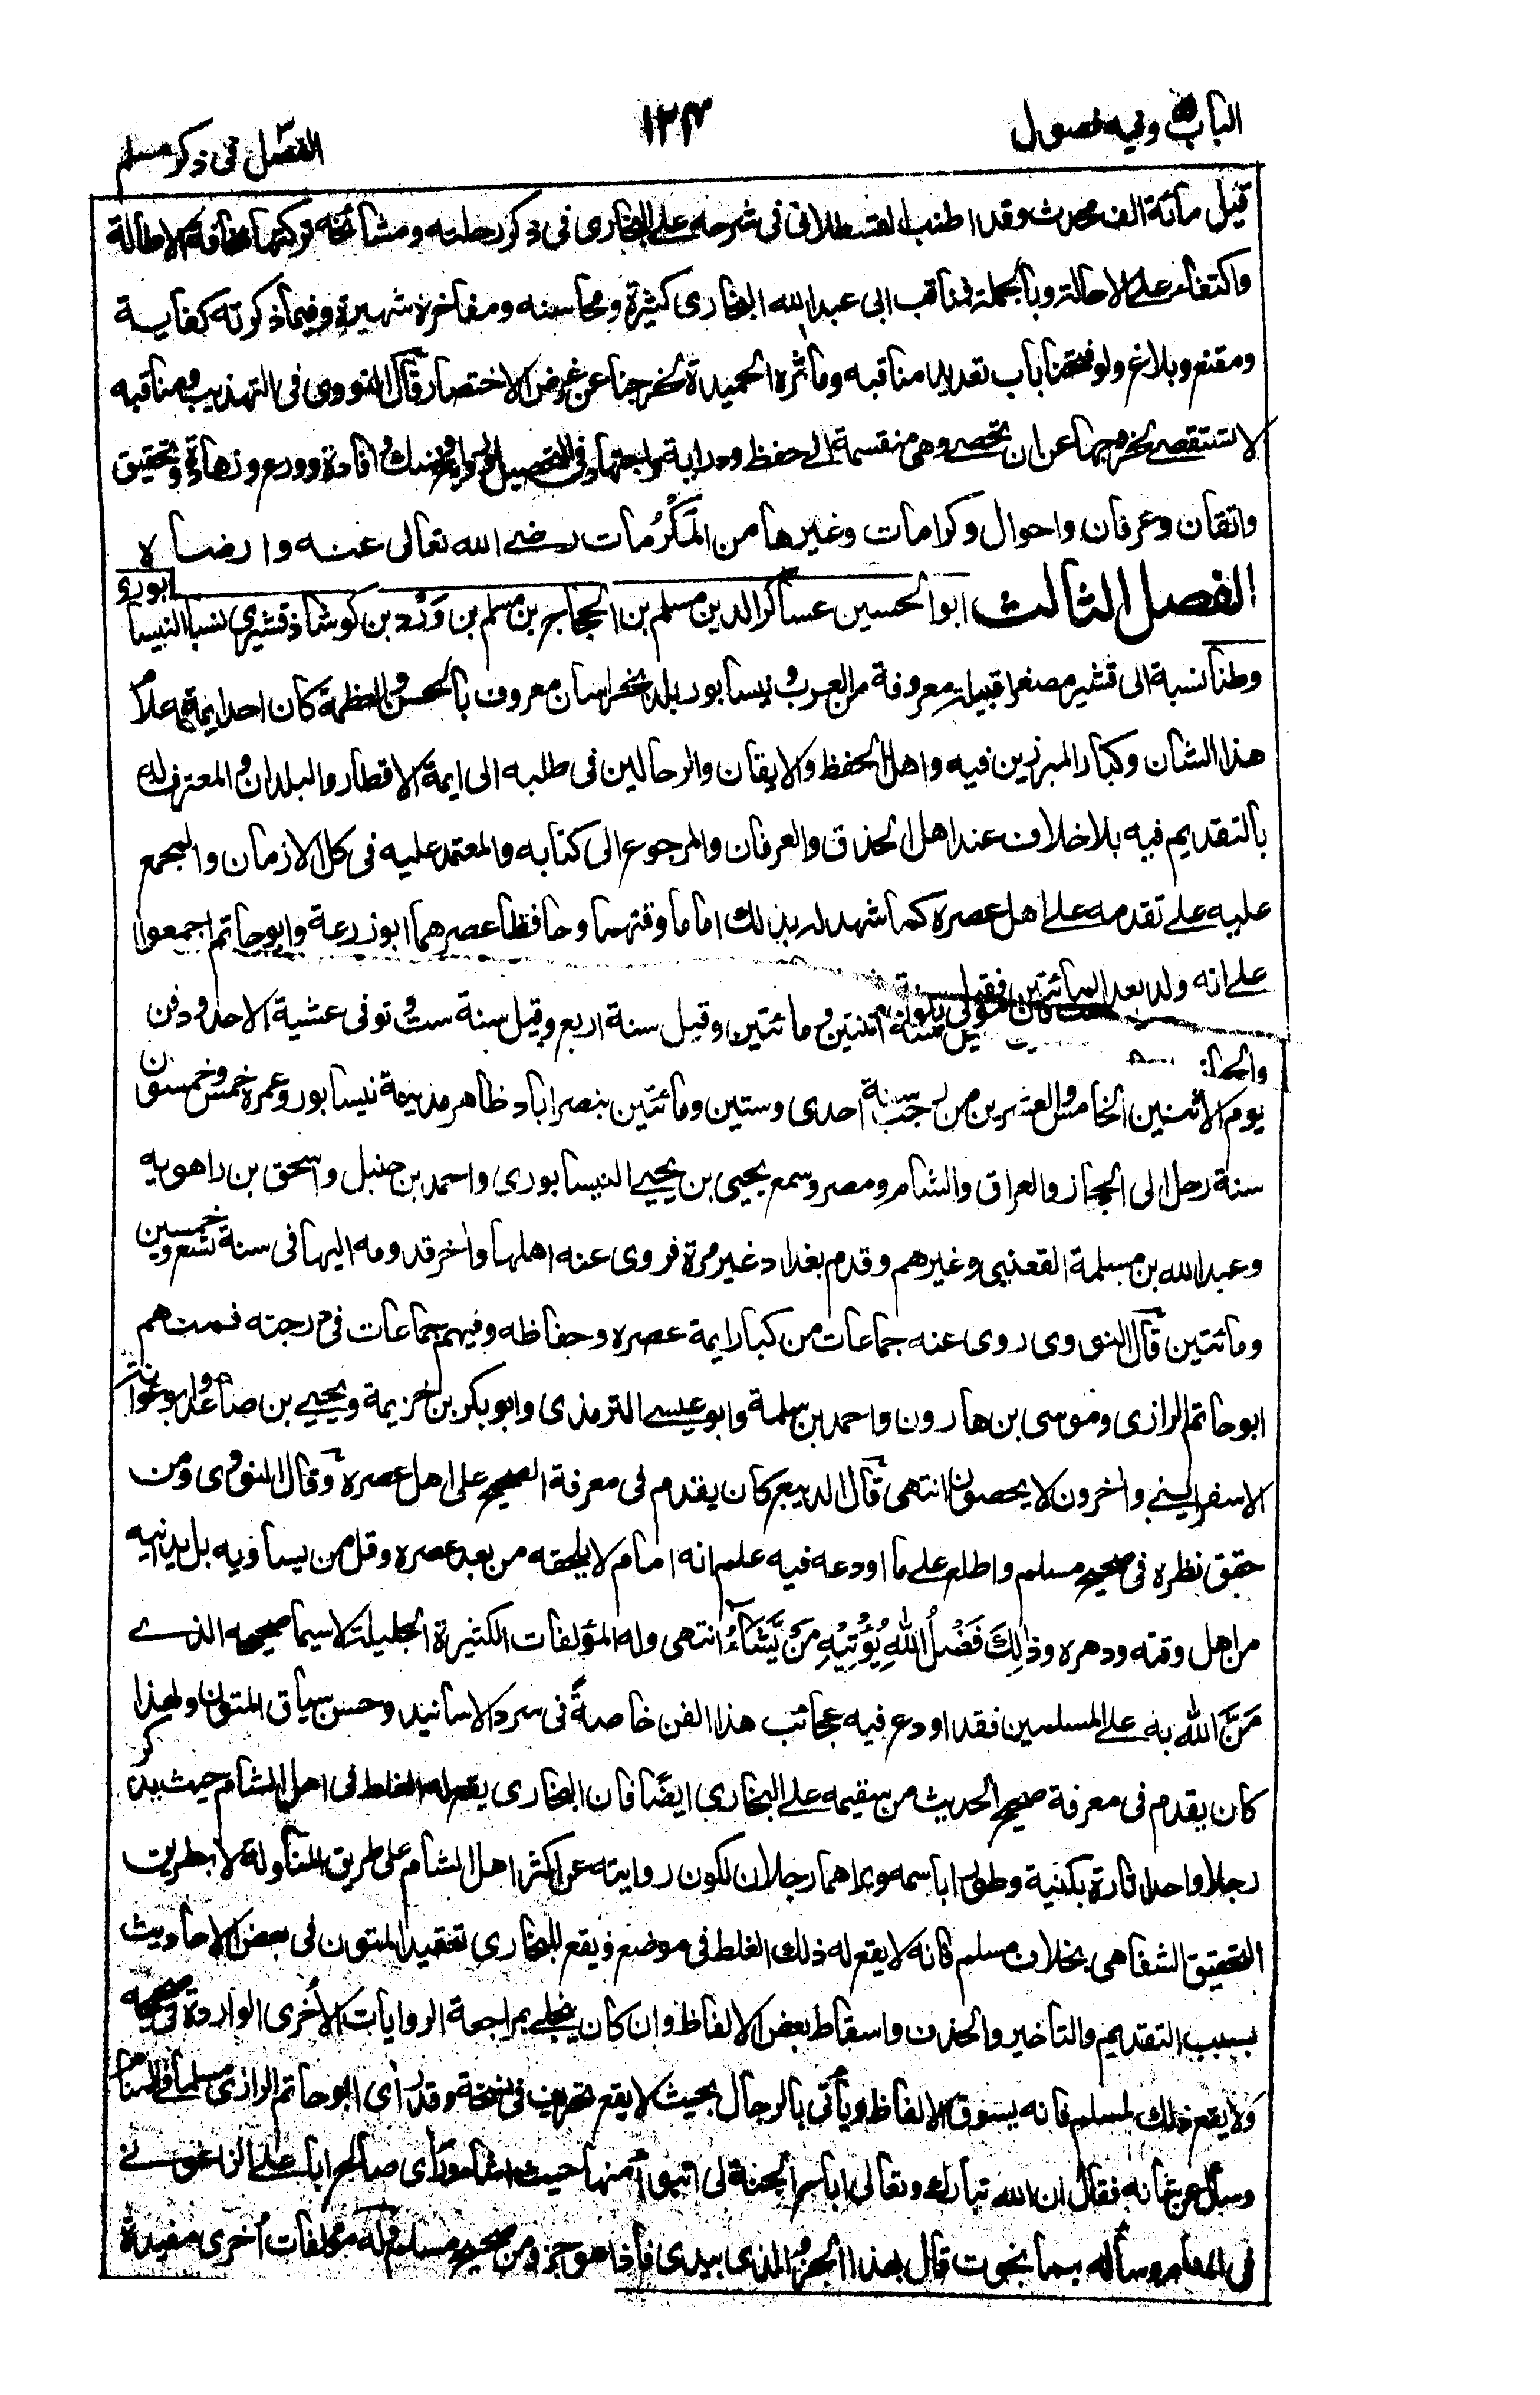 الباب وفيه فصول
١٢٣
الفصل فى ذكر مسلم
قيل مائة الف محدث وقد اطنب القسطلانى فى شرحه على البخارى فى ذكر رحلته ومشائخه تركتها مخافة الاطالة
واكتفاء على الاحالة وبالجملة فمناقب ابى عبد الله البخارى كثيرة ومحاسنه ومفاخره شهيرة وفيما ذكرته كفاية
ومقنع وبلاغ ولو فتحنا باب تعديد مناقبه ومآثره الحميدة لخرجنا عن غرض الاختصار قال النووى فى التهذيب ومناقبه
لا تستقصى لخروجها عن ان تحصى وهى منقسمة الى حفظ ودراية واجتهاد فى التحصيل ورواية ونسك وافادة وورع وزهادة وتحقيق
واتقان وعرفان واحوال وكرامات وغيرها من المَكْرُمات رضى الله تعالى عنه وارضاه
الفصل الثالث ابو الحسين عساكر الدين مسلم بن الحجاج بن مسلم بن وَرْد بن كوشاذ قشيرى نسبا النيسابورى
وطنا نسبة الى قشير مصغرا قبيلة معروفة من العرب ونيسابور بلد بخراسان معروف بالحسن والعظمة كان احد ايمة اعلام
هذا الشان وكبار المبرزين فيه واهل الحفظ والايقان والرحالين فى طلبه الى ايمة الاقطار والبلدان والمعترف له
بالتقديم فيه بلا خلاف عند اهل الحذق والعرفان والمرجوع الى كتابه والمعتمد عليه فى كل الازمان والمجمع
عليه على تقدمه على اهل عصره كما شهد له بذلك اماما وقتهما وحافظا عصرهما ابو زرعة وابو حاتم اجمعوا
على انه ولد بعد المائتين فقيل سنة اثنتين ومائتين وقيل سنة اربع وقيل سنة ست وتوفى عشية الاحد ودفن
يوم الاثنين الخامس والعشرين من رجب سنة احدى وستين ومائتين بنصراباد ظاهر مدينة نيسابور وعمره خمس وخمسون
سنة رحل الى الحجاز والعراق والشام ومصر وسمع يحيى بن يحيى النيسابورى واحمد بن حنبل واسحق بن راهويه
وعبد الله بن مسلمة القعنبى وغيرهم وقدم بغداد غير مرة فروى عنه اهلها واخر قدومه اليها فى سنة تسع وخمسين
ومائتين قال النووى روى عنه جماعات من كبار ايمة عصره وحفاظه وفيهم جماعات فى درجته فمنهم
ابو حاتم الرازى وموسى بن هارون واحمد بن سلمة وابو عيسى الترمذى وابو بكر بن خزيمة ويحيى بن صاعد وابو عوانة
الاسفراينى واخرون لا يحصون انتهى قال الديبع كان يقدم فى معرفة الصحيح على اهل عصره وقال النووى ومن
حقق نظره فى صحيح مسلم واطلع على ما اودعه فيه علم انه امام لا يلحقه من بعد عصره وقل من يساويه بل يدانيه
من اهل وقته ودهره وذٰلِكَ فَضْلُ اللهِ يُؤْتِيْهِ مَنْ يَّشَاءُ انتهى وله المؤلفات الكثيرة الجليلة لا سيما صحيحه الذى
مَنَّ الله به على المسلمين فقد اودع فيه عجائب هذا الفن خاصةً فى سرد الاسانيد وحسن سياق المتون ولهذا
كان يقدم فى معرفة صحيح الحديث من سقيمه على البخارى ايضًا فان البخارى يقع له الغلط فى اهل الشام حيث يذكر
رجلا واحدا تارة بكنية وطورا باسمه ويراهما رجلان لكون روايته عن اكثر اهل الشام على طريق المناولة لا بطريق
التحقيق الشفاهى بخلاف مسلم فانه لا يقع له ذلك الغلط فى موضع ويقع للبخارى تعقيد المتون فى بعض الاحاديث
بسبب التقديم والتاخير والحذف واسقاط بعض الالفاظ وان كان ينجلى بمراجعة الروايات الاُخرى الواردة فى صحيحه
ولا يقع ذلك لمسلم فانه يسوق الالفاظ ويأتى بالرجال بحيث لا يقع تحريف فى نسخة وقد رأى ابو حاتم الرازى مسلما فى المنام
وسأل عن شانه فقال ان الله تبارك وتعالى اباح الجنة لى اتبوأ منها حيث اشاء ورأى صالح ابا على الزاغونى
فى المنام وسأله بما نجوت قال بهذا الجزء الذى بيدى فاذا هو جزء من صحيح مسلم وله مؤلفات اُخرى مفيدة